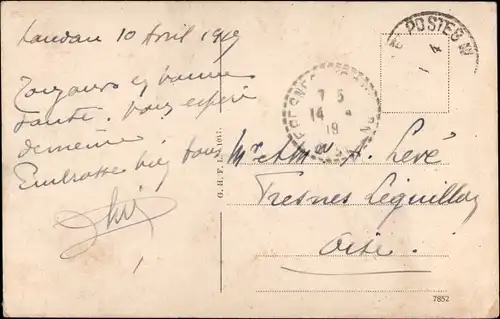 Landau 10 Avril 1919
Toujours en bonne
santé. Vous espère
de même
Embrasse bien tous
POSTES
7 5
14 4
19
Mr et Mme A. Levé
Fresnes Léguillon
Oise.
G. H. F. L. 1917.
7852